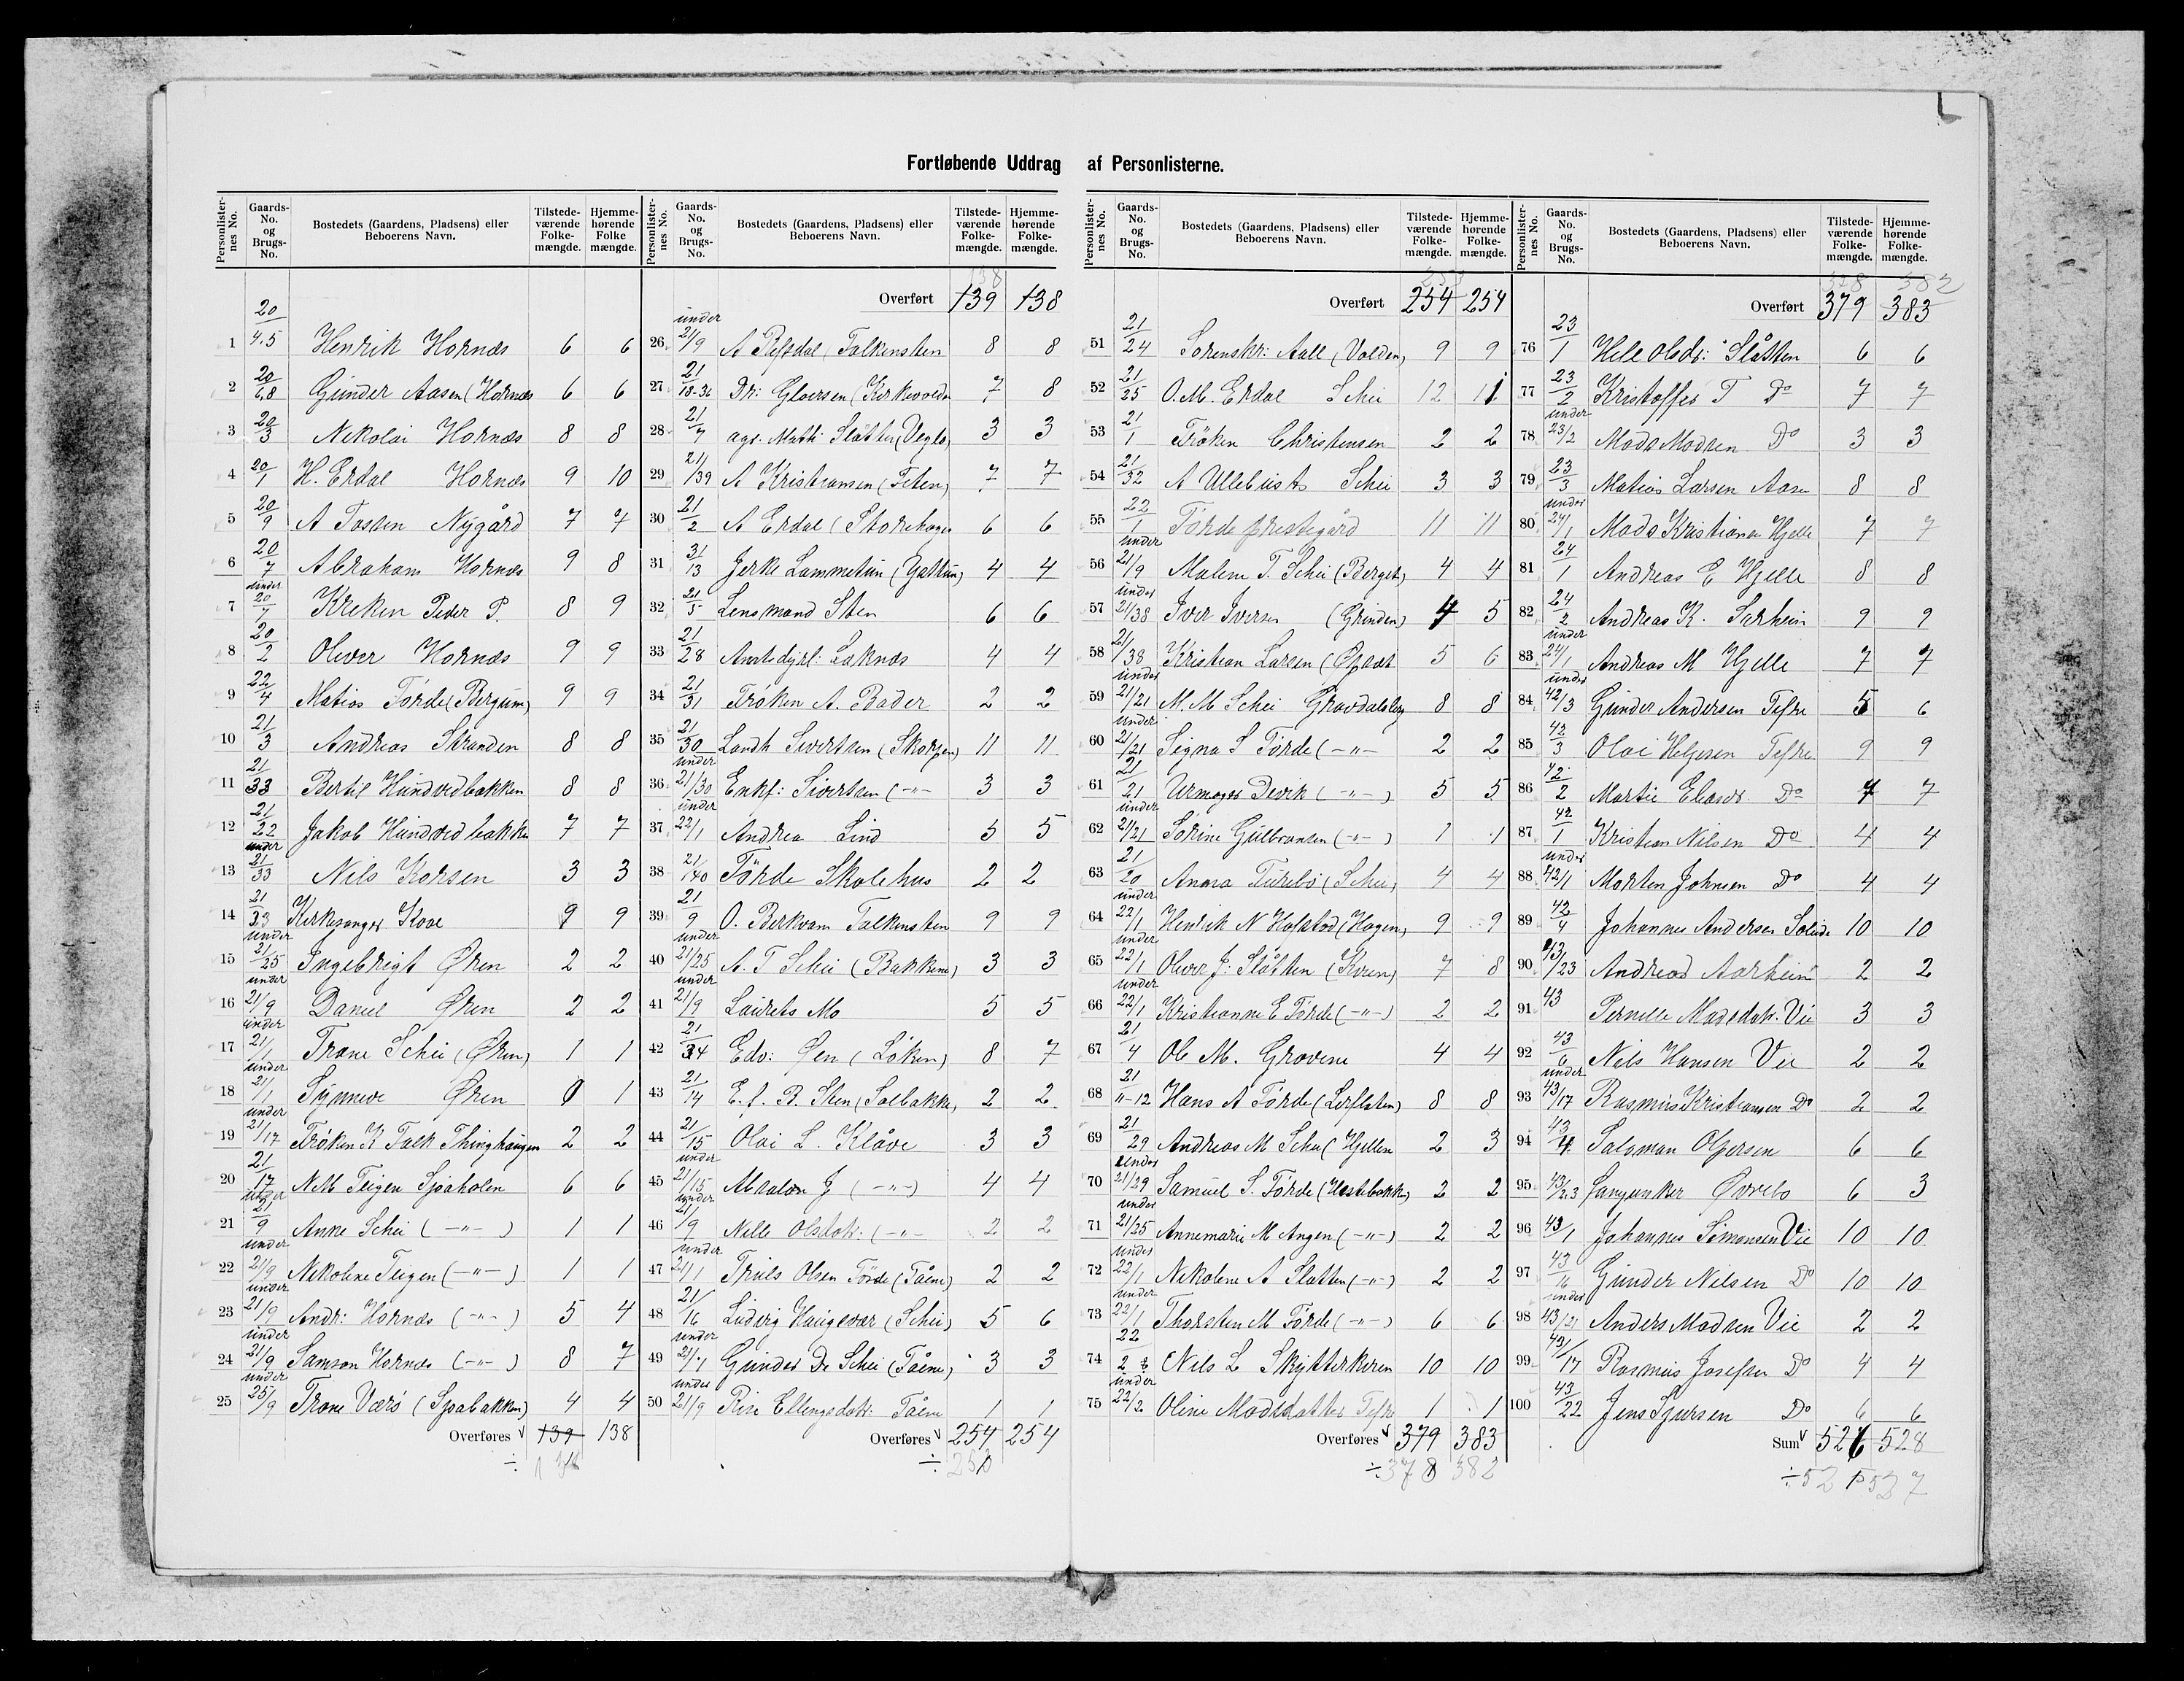 Fortløbende Uddrag af Personlisterne.
Personlisternes No. Gaards-No. og Brugs-No. Bostedets (Gaardens, Pladsens) eller Beboerens Navn. Tilstedeværende Folkemængde. Hjemmehørende Folkemængde.
1 20/4.5 Henrik Hornæs 6 6
2 20/6.8 Gunder Aasen (Hornæs 6 6
3 20/3 Nikolai Hornæs 8 8
4 20/1 H. Erdal Hornæs 9 10
5 20/9 A Tosten Nygård 7 7
6 20/7 Abraham Hornæs 9 8
7 under 20/7 Kreken Peder P. 8 9
8 20/2 Oliver Hornæs 9 9
9 22/4 Matias Förde (Bergum) 9 9
10 21/3 Andreas Stranden 8 8
11 21/33 Bertil Hundvedbakken 8 8
12 21/22 Jakob Hundvedbakke 7 7
13 under 21/33 Nils Korsen 3 3
14 21/33 Kirkesanger Kvae 9 9
15 under 21/25 Ingebrigt Øren 2 2
16 under 21/9 Daniel Øren 2 2
17 under 21/1 Trane Schei (Øren) 1 1
18 under 21/1 Synneve Øren 0 1
19 under 21/17 Frøken K Falk Thinghaugen 2 2
20 21/17 N M Teigen Sjoaholen 6 6
21 under 21/9 Anne Schei (-"-) 1 1
22 under 21/9 Nikoline Teigen (-"-) 1 1
23 under 21/9 Andr: Hornæs (-"-) 5 4
24 under 21/9 Samson Hornæs (-"-) 8 7
25 under 25/9 Trane Værø (Sjoabakken) 4 4
Overføres 139 138
÷
Overført 138 139 138
26 under 21/9 A Refsdal Falkensten 8 8
27 21/18-36 Dr: Gloersen (Kirkevolden 7 8
28 21/7 agr. Math: Slåtten (Vegla) 3 3
29 21/139 A Kristiansen (Teten) 7 7
30 21/2 A Erdal (Storehagen 6 6
31 31/13 Jerke Lammetun (Yattun) 4 4
32 21/5 Lensmand Sten 6 6
33 21/28 Amtsdyrl: Løknæs 4 4
34 21/31 Frøken A. Bader 2 2
35 21/30 Landh Sivertsen (Skorpen) 11 11
36 under 21/30 Enkf: Sivertsen (-"- 3 3
37 under 22/1 Andrea Lind 5 5
38 21/140 Förde Skolehus 2 2
39 21/9 O. Berkvam Falkensten 9 9
40 under 21/25 A. T Schei (Bakkene) 3 3
41 under 21/9 Laurits Mo 5 5
42 21/34 Edv: Øen (Løken) 8 7
43 21/14 E. f. B. Sten (Solbakke) 2 2
44 21/15 Olai L. Klåve 3 3
45 under 21/15 Absalon J (-"-) 4 4
46 under 21/9 Nille Olsdatr: (-"- 2 2
47 under 21/1 Truls Olsen Förde (Tåene) 2 2
48 21/16 Ludvig Haugevær (Schei) 5 6
49 under 21/1 Gunder D. Schei (Tåene) 3 3
50 under 21/9 Rise Ellingsdatr: Tåene 1 1
Overføres 254 254
÷ 253
Overført 253 254 254
51 21/24 Sorenskr: Aall (Volden) 9 9
52 21/25 O. M. Erdal Schei 12 11
53 21/1 Frøken Christensen 2 2
54 21/32 A Ullebust Schei 3 3
55 22/1 Förde prestegård 11 11
56 under 21/9 Malene T. Schei (Berget) 4 4
57 under 21/38 Iver Iversen (Grinden) 4 5
58 21/38 Kristian Larsen 5 6
59 under 21/21 M. M Schei 8 8
60 under 21/21 Signa S Förde (-"- 2 2
61 21/21 Urmager Devik (-"-) 5 5
62 under 21/21 Sørine Gulbransen (-"-) 1 1
63 21/20 Anna Turebø (Schei) 4 4
64 under 22/1 Henrik N Hafstad (Hagen) 9 9
65 under 22/1 Oliver J: Slåtten (Kvien) 7 8
66 under 22/1 Kristianne E Förde (-"-) 2 2
67 21/4 Ole M. Grovene 4 4
68 21/"-12 Hans A Förde (Lerflaten) 8 8
69 21/29 Andreas M Schei (Hjellen 2 3
70 under 21/29 Samuel S. Förde (Hestebakk) 2 2
71 under 21/25 Annemarie M Angen (-"-) 2 2
72 under 22/1 Nikoline A Slåtten (-"-) 2 2
73 under 22/1 Thorsten M Förde (-"-) 6 6
74 22/2 Nils L Skytterkvien 10 10
75 under 22/2 Oline Madsdatter Tefre 1 1
Overføres 379 383
÷ 378 382
Overført 378 382 379 383
76 23/1 Hell Olsdr: Slåtten 6 6
77 23/2 Kristoffer T Do 7 7
78 under 23/2 Mads Madsen Do 3 3
79 23/3 Matias Larsen Aasen 8 8
80 under 24/1 Mads Kristiansen Hjelle 7 7
81 24/1 Andreas E Hjelle 8 8
82 24/2 Andreas K. Sarheim 9 9
83 under 24/1 Andreas M Hjelle 7 7
84 under 42/3 Gunder Andersen Tefre 5 6
85 42/3 Olai Helgesen Tefre 9 9
86 42/2 Martie Eliasdr Do 7 7
87 42/1 Kristian Nilsen Do 4 4
88 under 42/1 Morten Johnsen Do 4 4
89 42/4 Johannes Andersen Soleide 10 10
90 43/23 Andreas Aarheim 2 2
91 43 Pernille Madsdatr. Vie 3 3
92 43/6 Nils Hansen Vie 2 2
93 under 43/17 Rasmus Kristiansen Do 2 2
94 43/4 Salomon Olsen 6 6
95 43/23 Fanejunker Øvrebø 6 3
96 43/1 Johannes Simonsen Vie 10 10
97 43/16 Gunder Nilsen Do 10 10
98 under 43/21 Anders Madsen Vie 2 2
99 43/17 Rasmus Josefsen Do 4 4
100 43/22 Jens Sjursen Do 6 6
Sum 526 528
÷ 525 527